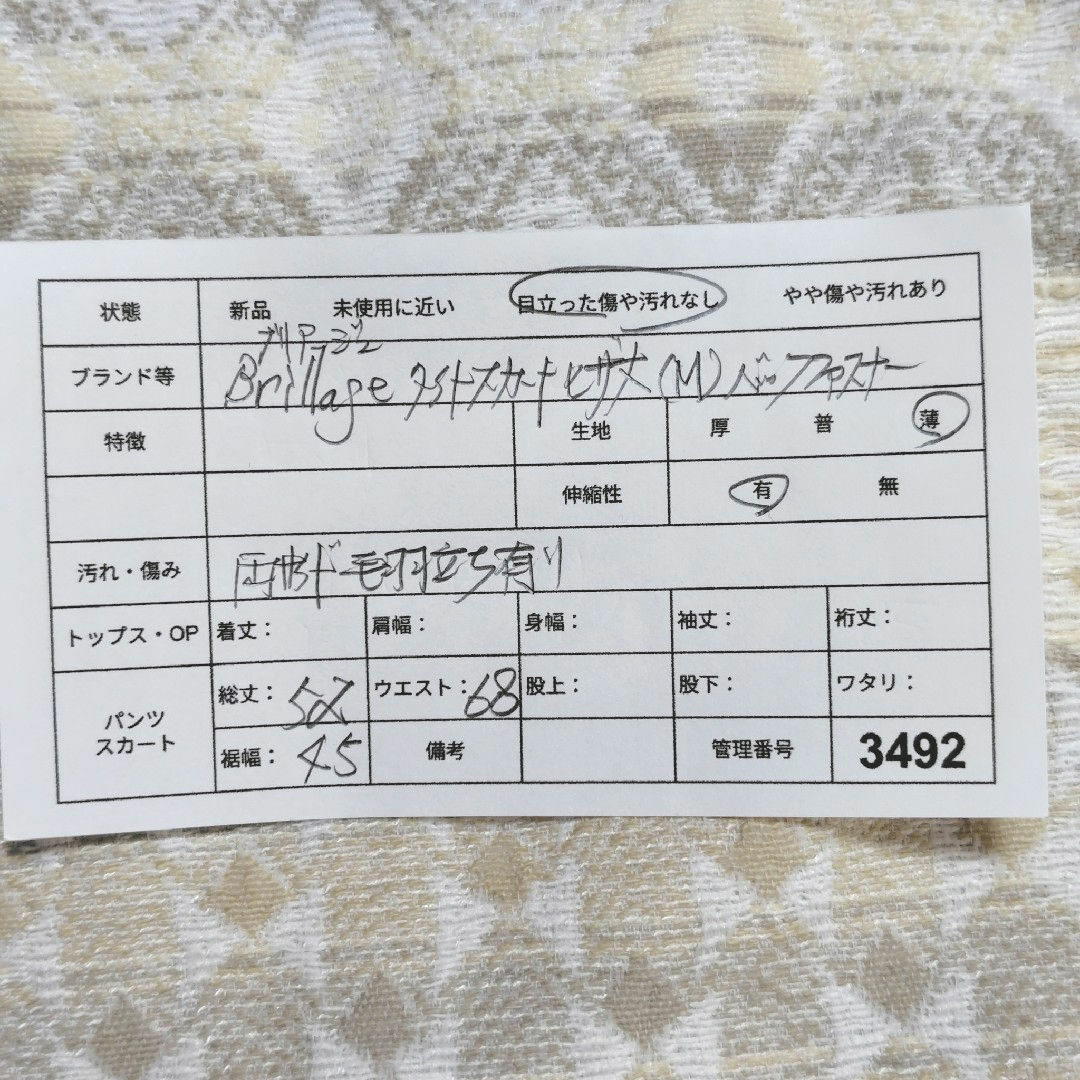 状態 新品 未使用に近い 目立った傷や汚れなし やや傷や汚れあり
ブランド等 Brillage タイトスカート ヒザ丈 (M) バックファスナー
特徴 生地 厚 普 薄
伸縮性 有 無
汚れ・傷み 毛羽立ち有り
トップス・OP 着丈: 肩幅: 身幅: 袖丈: 裄丈:
パンツ スカート 総丈:52 ウエスト:68 股上: 股下: ワタリ:
裾幅:45 備考 管理番号 3492